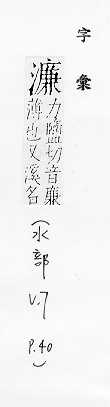 字彙
濂
力鹽切音廉
薄也又溪名
(水部
V.7
P.40)